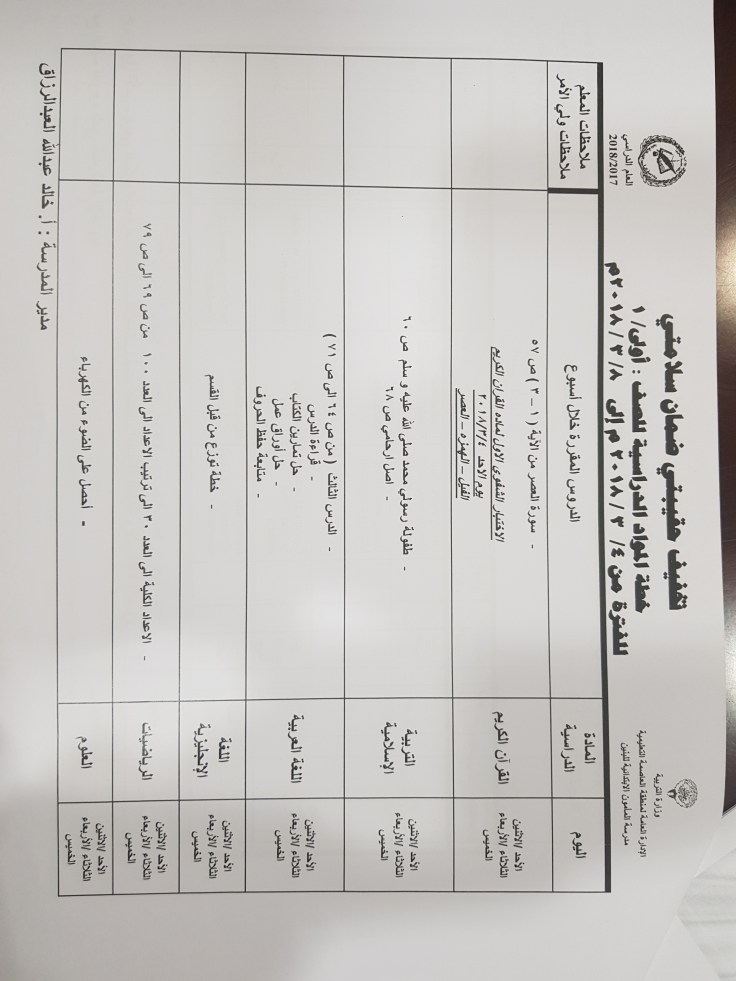 وزارة التربية
الإدارة العامة لمنطقة العاصمة التعليمية
مدرسة المأمون الابتدائية للبنين
العام الدراسي
2018/2017
تخفيف حقيبتي ضمان سلامتي
خطة المواد الدراسية للصف : أولى/ ١
للفترة من ٤/ ٣ / ٢٠١٨ م إلى ٨/ ٣ / ٢٠١٨م
اليوم
المادة
الدراسية
الدروس المقررة خلال أسبوع
ملاحظات المعلم
ملاحظات ولي الأمر
الأحد /الاثنين
الثلاثاء /الأربعاء
الخميس
القرآن الكريم
- سورة العصر من الآية ( ١ – ٣ ) ص ٥٧
الاختبار الشفوي الاول لمادة القران الكريم
يوم الاحد ٢٠١٨/٣/٤
الفيل – الهمزه – العصر
الأحد /الاثنين
الثلاثاء /الأربعاء
الخميس
التربية
الإسلامية
- طفولة رسولي محمد صلى الله عليه و سلم ص ٦٠
- اصل ارحامي ص ٦٨
الأحد /الاثنين
الثلاثاء /الأربعاء
الخميس
اللغة العربية
- الدرس الثالث ( من ص ٦٤ الى ص ٧١ )
- قراءة الدرس
- حل تمارين الكتاب
- حل أوراق عمل
- متابعة حفظ الحروف
الأحد /الاثنين
الثلاثاء /الأربعاء
الخميس
اللغة
الإنجليزية
- خطة توزع من قبل القسم
الأحد /الاثنين
الثلاثاء /الأربعاء
الخميس
الرياضيات
- الاعداد الكلية الى العدد ٣٠ الى ترتيب الاعداد الى العدد ١٠٠ من ص ٦٩ الى ص ٧٩
الأحد /الاثنين
الثلاثاء /الأربعاء
الخميس
العلوم
- أحصل على الضوء من الكهرباء
مدير المدرسة : أ. خالد عبدالله العبدالرزاق